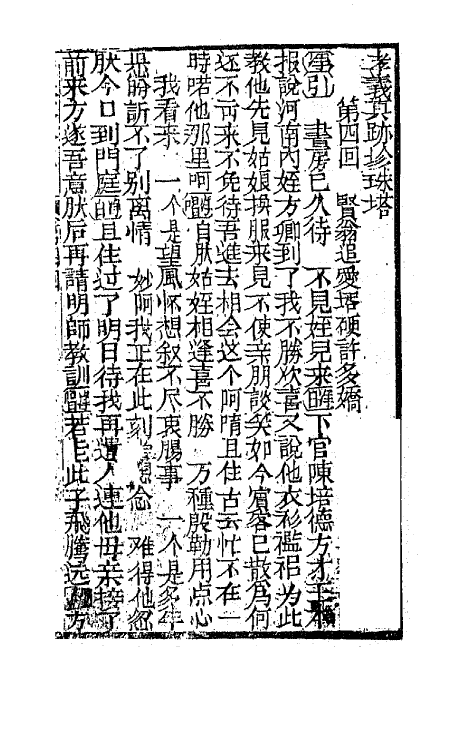 孝義真跡珍珠塔
第四回　賢翁追愛壻硬許多嬌
引　書房已久待　不見姪兒来　下官陳培德方才
报說河南內姪方卿到了我不勝欢喜又說他衣衫襤褸为此
教他先見姑娘换服来見不使亲朋談笑如今賓客已散為何
还不前来不免待吾進去相会这个阿唷且住古云忙不在一
時喏他那里呵自肰姑姪相逢喜不勝　万種殷勤用点心
我看来　一个是望風怀想叙不尽衷腸事　一个是多年
訴不了别离情　妙啊我正在此刻念　难得他忽
肰今日到門庭且住过了明日待我再遣人連他毋亲接了
前来方遂吾意肰后再請明師教訓若此子飛騰远方